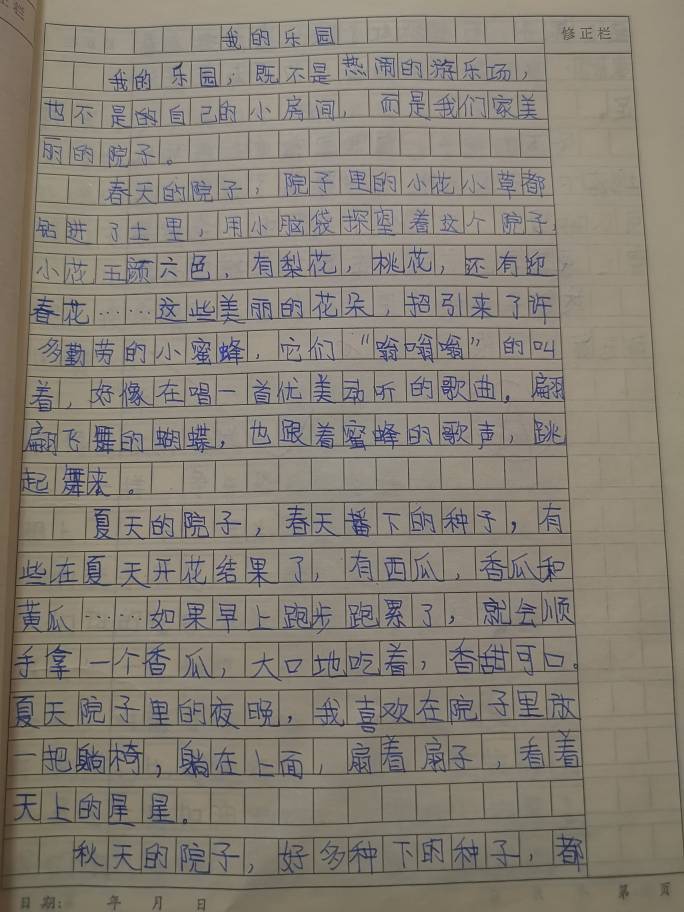 正栏
修正栏
我的乐园
我的乐园，既不是热闹的游乐场，
也不是的自己的小房间，而是我们家美
丽的院子。
春天的院子，院子里的小花小草都
钻进了土里，用小脑袋探望着这个院子，
小花五颜六色，有梨花，桃花，还有迎
春花……这些美丽的花朵，招引来了许
多勤劳的小蜜蜂，它们“嗡嗡嗡”的叫
着，好像在唱一首优美动听的歌曲，翩
翩飞舞的蝴蝶，也跟着蜜蜂的歌声，跳
起舞来。
夏天的院子，春天番下的种子，有
些在夏天开花结果了，有西瓜，香瓜和
黄瓜……如果早上跑步跑累了，就会顺
手拿一个香瓜，大口地吃着，香甜可口。
夏天院子里的夜晚，我喜欢在院子里放
一把躺椅，躺在上面，扇着扇子，看着
天上的星星。
秋天的院子，好多种下的种子，都
日期： 年 月 日
第 页